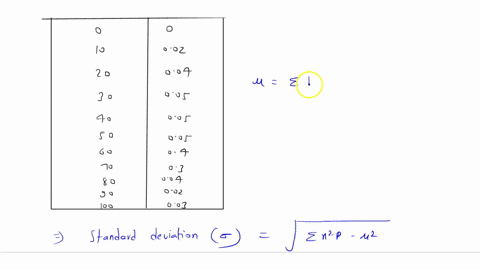 0 0
10 0.02
20 0.04
30 0.05
40 0.05
μ = Σ
50 0.05
60 0.4
70 0.3
80 0.04
90 0.02
100 0.03
⇒ Standard deviation (σ) = √Σx²P - μ²